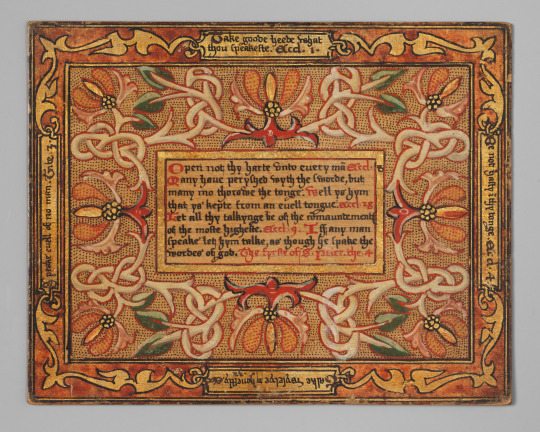 Take goode heede what
thou speakeste. Eccl. 1.
Speake euell of no man. Tite. 3.
Open not thy harte vnto euery mā Eccl.
Many haue peryshed wyth the sworde, but
many mo thorowe the tonge. Well ys hym
that ys kepte from an euell tongue. Eccl. 28
Let all thy talkynge be of the cōmaundement
of the moste hygheste. Eccl. 9. If any man
speake let hym talke, as though he spake the
wordes of god. The fyrst of S. Peter. the. 4
Be not hasty i thy tonge. Eccl. 4.